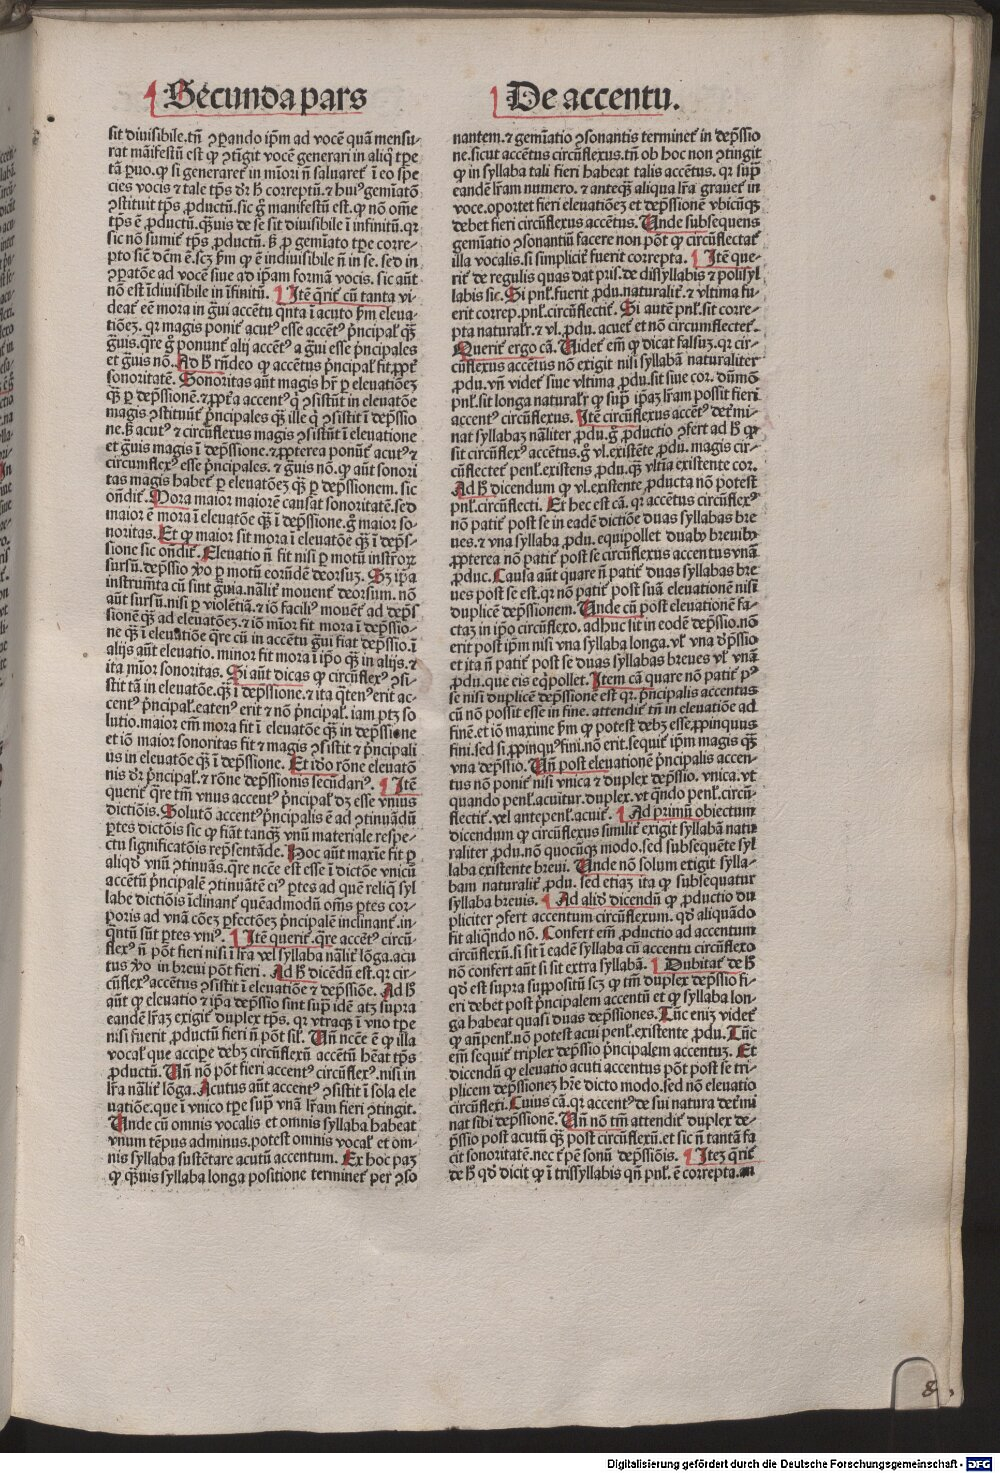 Secunda pars
De accentu.
sit diuisibile.tñ ꝯparando ip̃m ad vocẽ quã mensu-
rat mãifestũ est ꝙ ꝯtigit vocẽ generari in aliq̃ tp̃e
tã paruo.ꝙ si generaret̃ in mīori ñ saluaret̃ ī eo spe
cies vocis ⁊ tale tp̃s dr̃ h̃ correptũ.⁊ huiꝰ gemīatō
ꝯstituit tp̃s ꝓductũ.sic g̃ manifestũ est.ꝙ nõ om̃e
tp̃s ẽ ꝓductũ.q̃ꝫuis de se sit diuisibile ī infinitũ.qr
sic nõ sumit̃ tp̃s ꝓductũ.ß ꝓ gemīato tp̃e corre-
pto sic̃ dc̃m ẽ.scꝫ ꝑm ꝙ ẽ indiuisibile ñ in se.sed in
ꝯpatõe ad vocẽ siue ad ip̃am formã vocis.sic aũt
nõ est īdiuisibile in īfinitũ. Itẽ q̃rit̃ cũ tanta vi-
deat̃ eẽ mora in g̃ui accẽtu q̃nta ī acuto ꝑm eleua-
tiõeꝫ.qr magis ponit̃ acutꝰ esse accẽtꝰ p̃ncipal̃ q̃ꝫ
g̃uis.q̃re g̃ ponunt̃ alij accẽtꝰ a g̃ui esse p̃ncipales
et g̃uis nõ. Ad h̃ rñdeo ꝙ accẽtus p̃ncipal̃ fit ꝓpt̃
sonoritatẽ. Sonoritas aũt magis hr̃ ꝑ eleuatiõeꝫ
q̃ꝫ ꝑ dep̃ssionẽ.⁊ ꝓpt̃a accentꝰ q̃ ꝯsistũt in eleuatõe
magis ꝯstituũt̃ p̃ncipales q̃ꝫ ille q̃ ꝯsistit ī dep̃ssio
ne.ß acutꝰ ⁊ circũflexus magis ꝯsistũt ī eleuatione
et g̃uis magis ī dep̃ssione.⁊ ꝓpterea ponũt̃ acutꝰ ⁊
circumflexꝰ esse p̃ncipales.⁊ g̃uis nõ.ꝙ aũt sonori
tas magis habet̃ ꝑ eleuatõeꝫ q̃ꝫ ꝑ dep̃ssionem.sic
oñdit̃. Mora maior maiorẽ causat sonoritatẽ.sed
maior ẽ mora ī eleuatõe q̃ꝫ ī dep̃ssione.g̃ maior so-
noritas. Et ꝙ maior sit mora ī eleuatõe q̃ꝫ ī dep̃s-
sione sic ondit̃. Eleuatio ñ fit nisi ꝑ motũ instr̃oꝝ
sursũ.dep̃ssio ꝟo ꝑ motũ eorũdẽ deorsuꝫ. Sꝫ ip̃a
instrum̃ta cũ sint g̃uia.nãlit̃ mouent̃ deorsum.nõ
aũt sursũ.nisi ꝑ violẽtiã.⁊ iõ faciliꝰ mouẽt̃ ad dep̃s
sionẽ q̃ꝫ ad eleuatõeꝫ.⁊ iõ mīor fit mora ī dep̃ssio-
ne q̃ꝫ ī eleuatiõe q̃re cũ in accẽtu g̃ui fiat dep̃ssio.ī
alijs aũt eleuatio.minor fit mora ī ip̃o q̃ꝫ in alijs.⁊
ita mīor sonoritas. Si aũt dicas ꝙ circũflexꝰ ꝯsi-
stit tã in eleuatõe.q̃ꝫ ī dep̃ssione.⁊ ita q̃tenꝰ erit ac-
centꝰ p̃ncipal̃.eatenꝰ erit ⁊ nõ p̃ncipal̃.iam ptꝫ so
lutio.maior em̃ mora fit ī eleuatõe q̃ꝫ in dep̃ssione
et iõ maior sonoritas fit ⁊ magis ꝯsistit ⁊ p̃ncipali
us in eleuatõe q̃ꝫ ī dep̃ssione. Et iõo rõne eleuatõ
nis dr̃ p̃ncipal̃.⁊ rõne dep̃ssionis secũdariꝰ. Itẽ
querit̃ q̃re tm̃ vnus accentꝰ p̃ncipal̃ dꝫ esse vnius
dictiõis. Solutõ accentꝰ p̃ncipalis ẽ ad ꝯtinuãdũ
ꝑtes dictõis sic ꝙ fiãt tanq̃ꝫ vnũ materiale respe-
ctu significatõis rep̃sentãde. Hoc aũt maxīe fit ꝑ
aliqd̃ vnũ ꝯtinuãs.q̃re ncc̃e est esse ī dictõe vnicũ
accẽtũ p̃ncipalẽ ꝯtinuãtẽ eiꝰ ꝑtes ad quẽ reliq̃ syl
labe dictiõis īclinant̃ quẽadmodũ oẽs ꝑtes cor-
poris ad vnã cõeꝫ ꝑfectõeꝫ p̃ncipalẽ inclinant̃.in-
q̃ntũ sũt ꝑtes vniꝰ. Itẽ querit̃.q̃re accẽtꝰ circũ-
flexꝰ ñ põt fieri nisi ī lr̃a vel syllaba nãlit̃ lõga.acu
tus ꝟo in breui põt fieri. Ad h̃ dicẽdũ est.qr cir-
cũflexꝰ accẽtus ꝯsistit ī eleuatiõe ⁊ dep̃ssiõe. Ad h̃
aũt ꝙ eleuatio ⁊ ip̃a dep̃ssio sint sup̃ idẽ atꝫ supra
eandẽ lr̃aꝫ exigit̃ duplex tp̃s.qr vtraq̃ꝫ ī vno tp̃e
nisi fuerit ꝓductũ fieri ñ põt sil̃. Vñ ncc̃e ẽ ꝙ illa
vocal̃ que accip̃e debꝫ circũflexũ accẽtũ hẽat tp̃s
ꝓductũ. Vñ nõ põt fieri accentꝰ circũflexꝰ.nisi in
lr̃a nãlit̃ lõga. Acutus aũt accentꝰ ꝯsistit ī sola ele
uatiõe.que ī vnico tp̃e sup̃ vnã lr̃am fieri ꝯtingit.
Vnde cũ omnis vocalis et omnis syllaba habeat
vnum tẽpus adminus.potest omnis vocal̃ et om-
nis syllaba sustẽtare acutũ accentum. Ex hoc paꝫ
ꝙ q̃ꝫuis syllaba longa positione terminet̃ per ꝯso
nantem.⁊ gemĩatio ꝯsonantis terminet̃ in dep̃ssio
ne.sicut accẽtus circũflexus.tñ ob hoc non ꝯtingit
ꝙ in syllaba tali fieri habeat talis accẽtus.qr sup̃
eandẽ lr̃am numero.⁊ anteq̃ꝫ aliqua lr̃a grauet̃ in
voce.oportet fieri eleuatiõeꝫ et dep̃ssionẽ vbicũq̃ꝫ
debet fieri circũflexus accẽtus. Vnde subsequens
gemĩatio ꝯsonantiũ facere non põt ꝙ circũflectat̃
illa vocalis.si simplicit̃ fuerit correpta. Itẽ que-
rit̃ de regulis quas dat pris.de disyllabis ⁊ polisyl
labis sic. Si pnl̃.fuerit ꝓdu.naturalit̃.⁊ vltima fu-
erit correp.pnl̃.circũflectit̃. Si autẽ pnl̃.sit corre-
pta naturalr̃.⁊ vl.ꝓdu.acuet̃ et nõ circumflectet̃.
Querit̃ ergo cã. Videt̃ em̃ ꝙ dicat falsuꝫ.qr cir-
cũflexus accẽtus nõ exigit nisi syllabã naturaliter
ꝓdu.vñ videt̃ siue vltima ꝓdu.sit siue cor. dũmõ
pnl̃.sit longa naturalr̃ ꝙ sup̃ ip̃aꝫ lr̃am possit fieri
accentꝰ circũflexus. Itẽ circũflexus accẽtꝰ det̃mi-
nat syllabaꝫ nãliter ꝓdu.g̃ ꝓductio ꝯfert ad h̃ ꝙ
sit circũflexꝰ accẽtus.g̃ vl.existẽte ꝓdu.magis cir-
cũflectet̃ penl̃.existens ꝓdu.q̃ꝫ vltīa existente cor.
Ad h̃ dicendum ꝙ vl.existente ꝓducta nõ potest
pnl̃.circũflecti. Et hec est cã.qr accẽtus circũflexꝰ
nõ patit̃ post se in eadẽ dictiõe duas syllabas bre
ues.⁊ vna syllaba ꝓdu.equipollet duabꝰ breuibꝰ
ꝓpterea nõ patit̃ post se circũflexus accentus vnã
ꝓduc. Causa aũt quare ñ patit̃ duas syllabas bre
ues post se est.qr nõ patit̃ post suã eleuationẽ nisi
duplicẽ dep̃ssionem. Vnde cũ post eleuationẽ fa-
ctaꝫ in ip̃o circũflexo.adhuc sit in eodẽ dep̃ssio.nõ
erit post ip̃m nisi vna syllaba longa.vl̃ vna dep̃ssio
et ita ñ patit̃ post se duas syllabas breues vl̃ vnã
ꝓdu.que eis eq̃pollet. Item cã quare nõ patit̃ pꝰ
se nisi duplicẽ dep̃ssionẽ est qr.p̃ncipalis accentus
cũ nõ possit esse in fine.attendit̃ tñ in eleuatiõe ad
finẽ.et iõ maxime ꝑm ꝙ potest debꝫ esse.ꝓpinquus
fini.sed si ꝓpinquꝰ fini.nõ erit.sequit̃ ip̃m magis q̃ꝫ
vna dep̃ssio. Vñ post eleuationẽ p̃ncipalis accen-
tus nõ ponit̃ nisi vnica ⁊ duplex dep̃ssio.vnica.vt
quando penl̃.acuitur.duplex.vt q̃ndo penl̃.circũ-
flectit̃.vel antepenl̃.acuit̃. Ad primũ obiectum
dicendum ꝙ circũflexus similit̃ exigit syllabã natu
raliter ꝓdu.nõ quocũq̃ꝫ modo.sed subsequẽte syl
laba existente breui. Vnde nõ solum exigit sylla-
bam naturalit̃ ꝓdu. sed etiaꝫ ita ꝙ subsequatur
syllaba breuis. Ad aliõ dicendũ ꝙ ꝓductio du
pliciter ꝯfert accentum circũflexum.qõ aliquãdo
fit aliq̃ndo nõ. Confert em̃ ꝓductio ad accentum
circũflexũ.si sit ī eadẽ syllaba cũ accentu circũflexo
nõ confert aũt si sit extra syllabã. Dubitat̃ de h̃
qõ est supra suppositũ scꝫ ꝙ tm̃ duplex dep̃ssio fi-
eri debet post p̃ncipalem accentũ et ꝙ syllaba lon-
ga habeat quasi duas dep̃ssiones. Tũc enĩꝫ videt̃
ꝙ añpenl̃.nõ potest acui penl̃.existente ꝓdu. Tũc
em̃ sequit̃ triplex dep̃ssio p̃ncipalem accentuꝫ. Et
dicendũ ꝙ eleuatio acuti accentus põt post se tri-
plicem dep̃ssioneꝫ hr̃e dicto modo.sed nõ eleuatio
circũflexi. Cuius cã.qr accentꝰ de sui natura det̃mi
nat sibi dep̃ssionẽ. Vñ nõ tm̃ attendit̃ duplex de-
p̃ssio post acutũ q̃ꝫ post circũflexũ.et sic ñ tantã fa
cit sonoritatẽ.nec t̃pẽ sonũ dep̃ssiõis. Iteꝫ q̃rit̃
de h̃ qõ dicit ꝙ ī trissyllabis qñ pnl̃.ẽ correpta.an
8
Digitalisierung gefördert durch die Deutsche Forschungsgemeinschaft - DFG